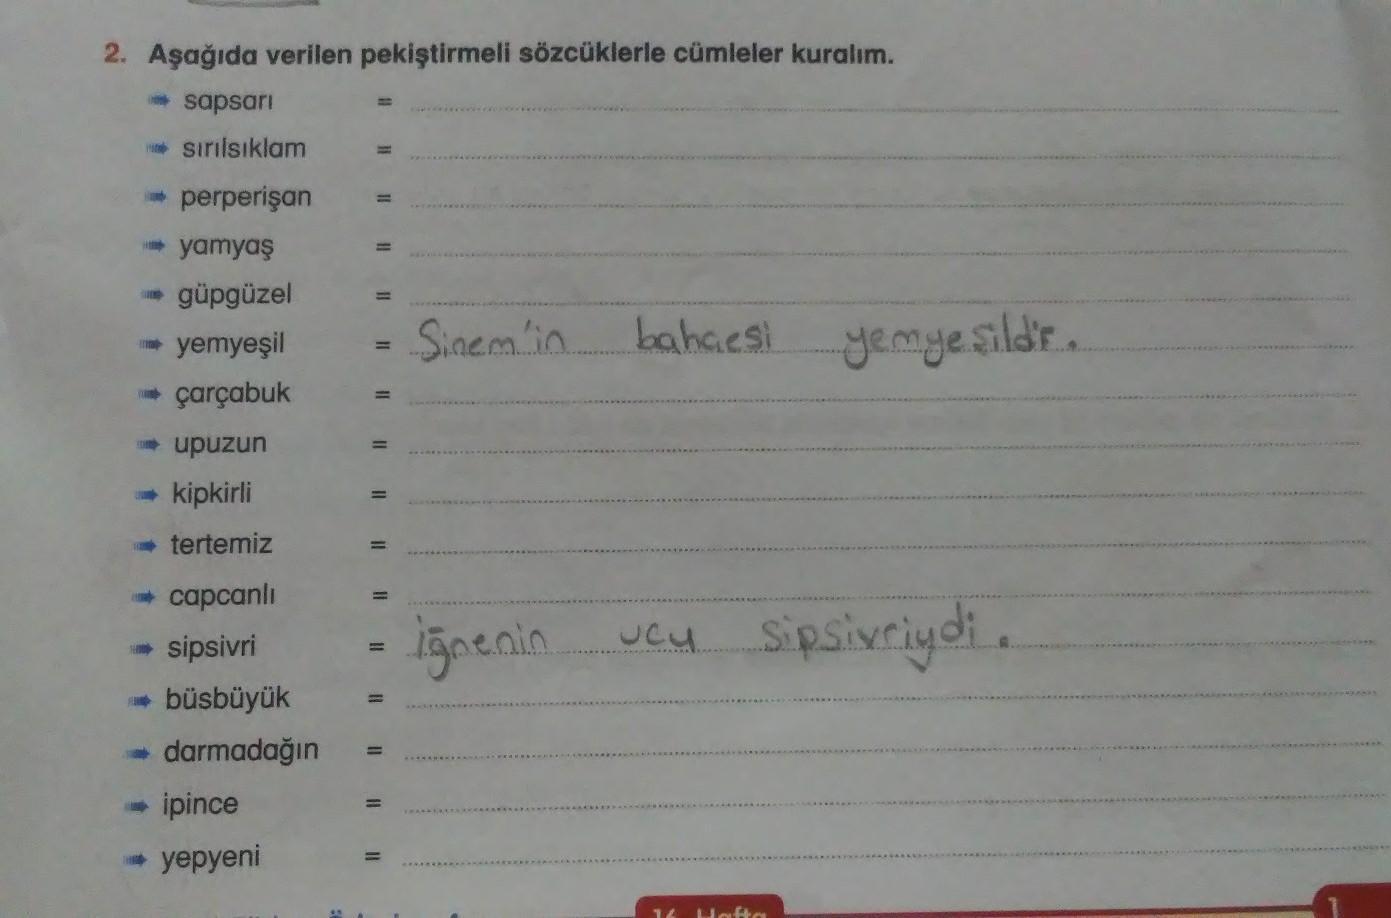 2. Aşağıda verilen pekiştirmeli sözcüklerle cümleler kuralım.
sapsarı =
sırılsıklam =
perperişan =
yamyaş =
güpgüzel =
yemyeşil = Sinem'in bahçesi yemyeşildir.
çarçabuk =
upuzun =
kipkirli =
tertemiz =
capcanlı =
sipsivri = iğnenin ucu sipsivriydi.
büsbüyük =
darmadağın =
ipince =
yepyeni =
16. Hafta
1